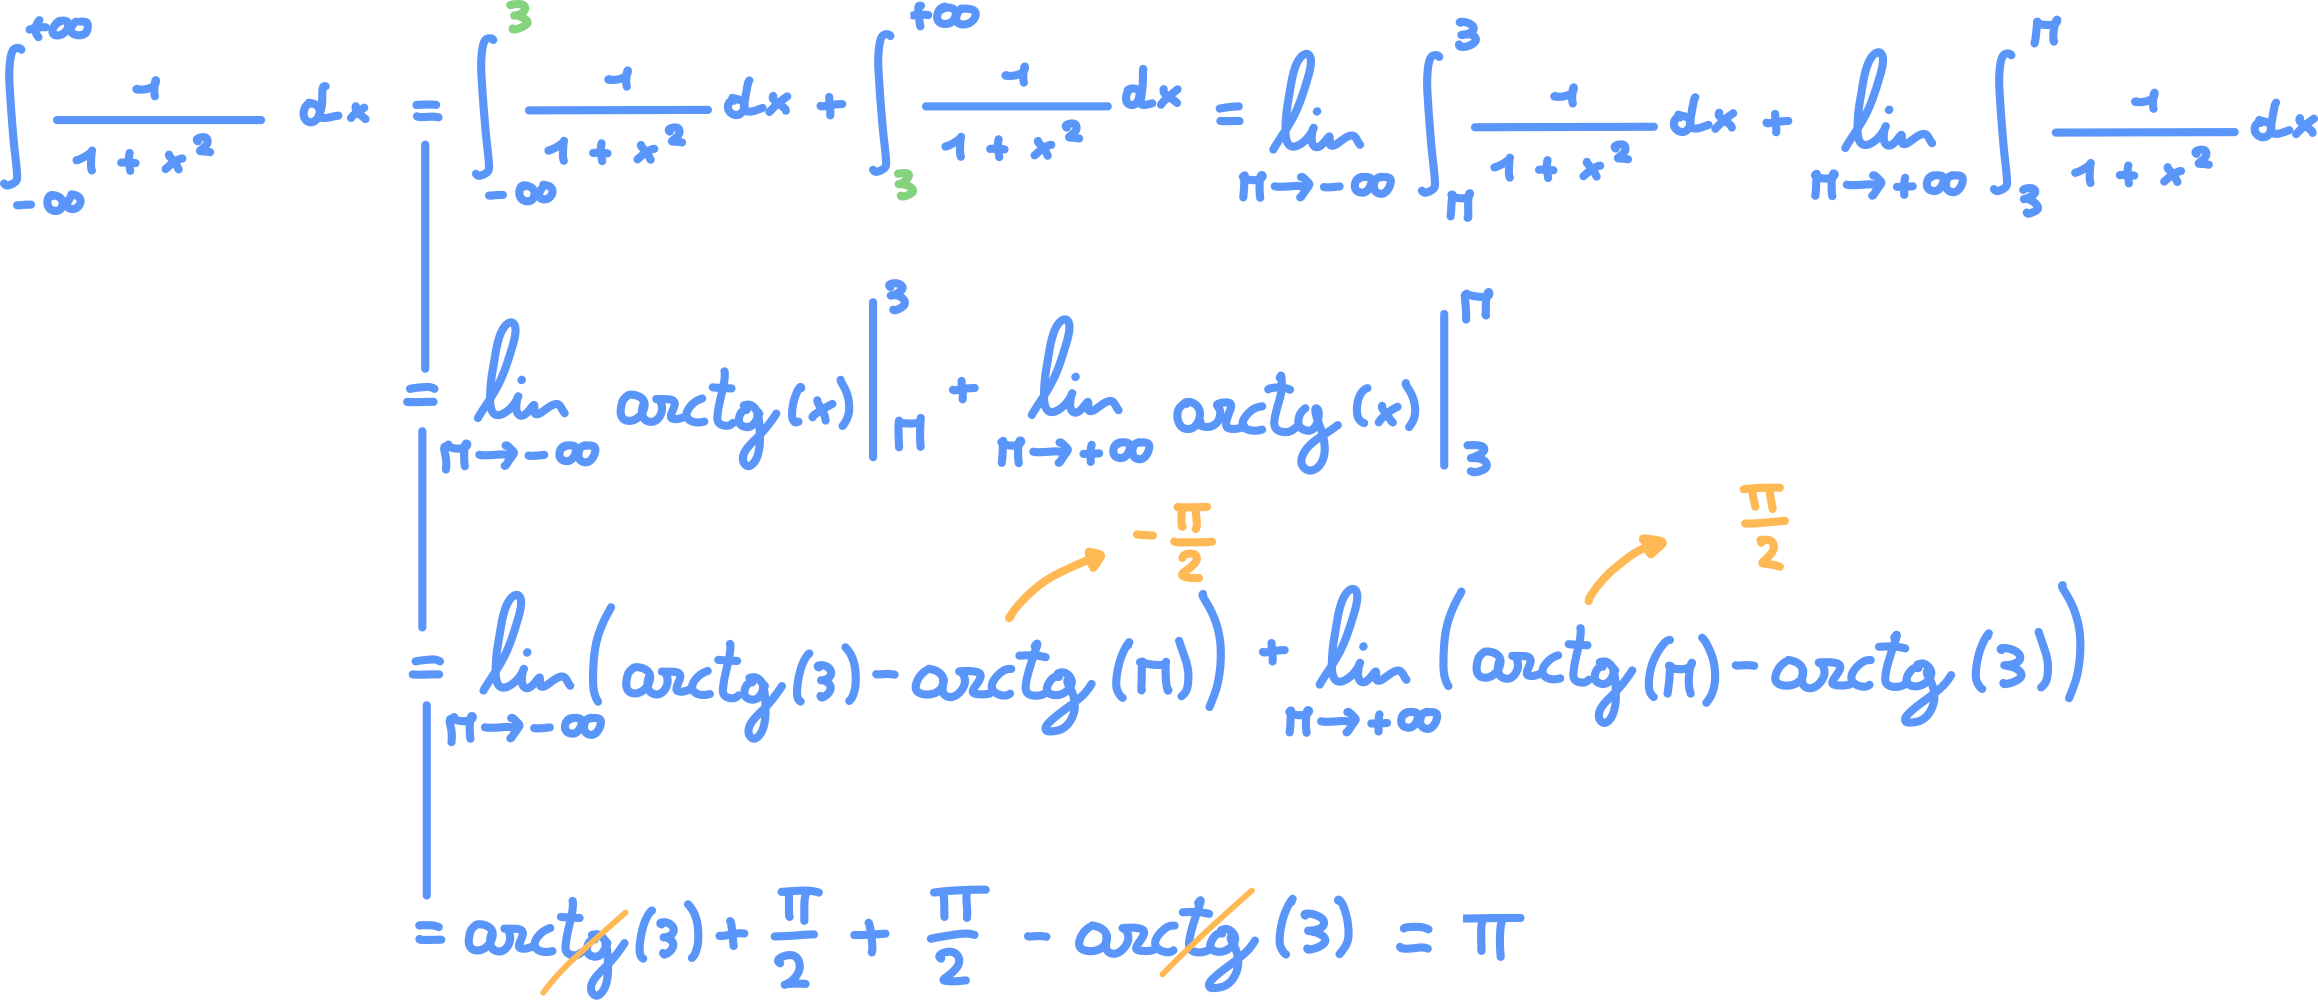 ∫_{-∞}^{+∞} 1/(1+x²) dx = ∫_{-∞}^{3} 1/(1+x²) dx + ∫_{3}^{+∞} 1/(1+x²) dx = lim_{M→-∞} ∫_{M}^{3} 1/(1+x²) dx + lim_{M→+∞} ∫_{3}^{M} 1/(1+x²) dx
= lim_{M→-∞} arctg(x) |_{M}^{3} + lim_{M→+∞} arctg(x) |_{3}^{M}
-π/2 π/2
= lim_{M→-∞} (arctg(3) - arctg(M)) + lim_{M→+∞} (arctg(M) - arctg(3))
= arctg(3) + π/2 + π/2 - arctg(3) = π